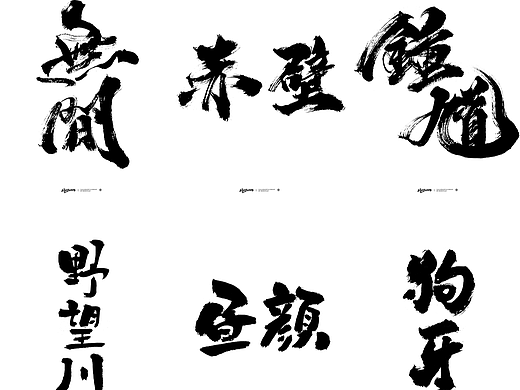 無間
赤壁
鍾馗
野望川
昼顔
狗牙